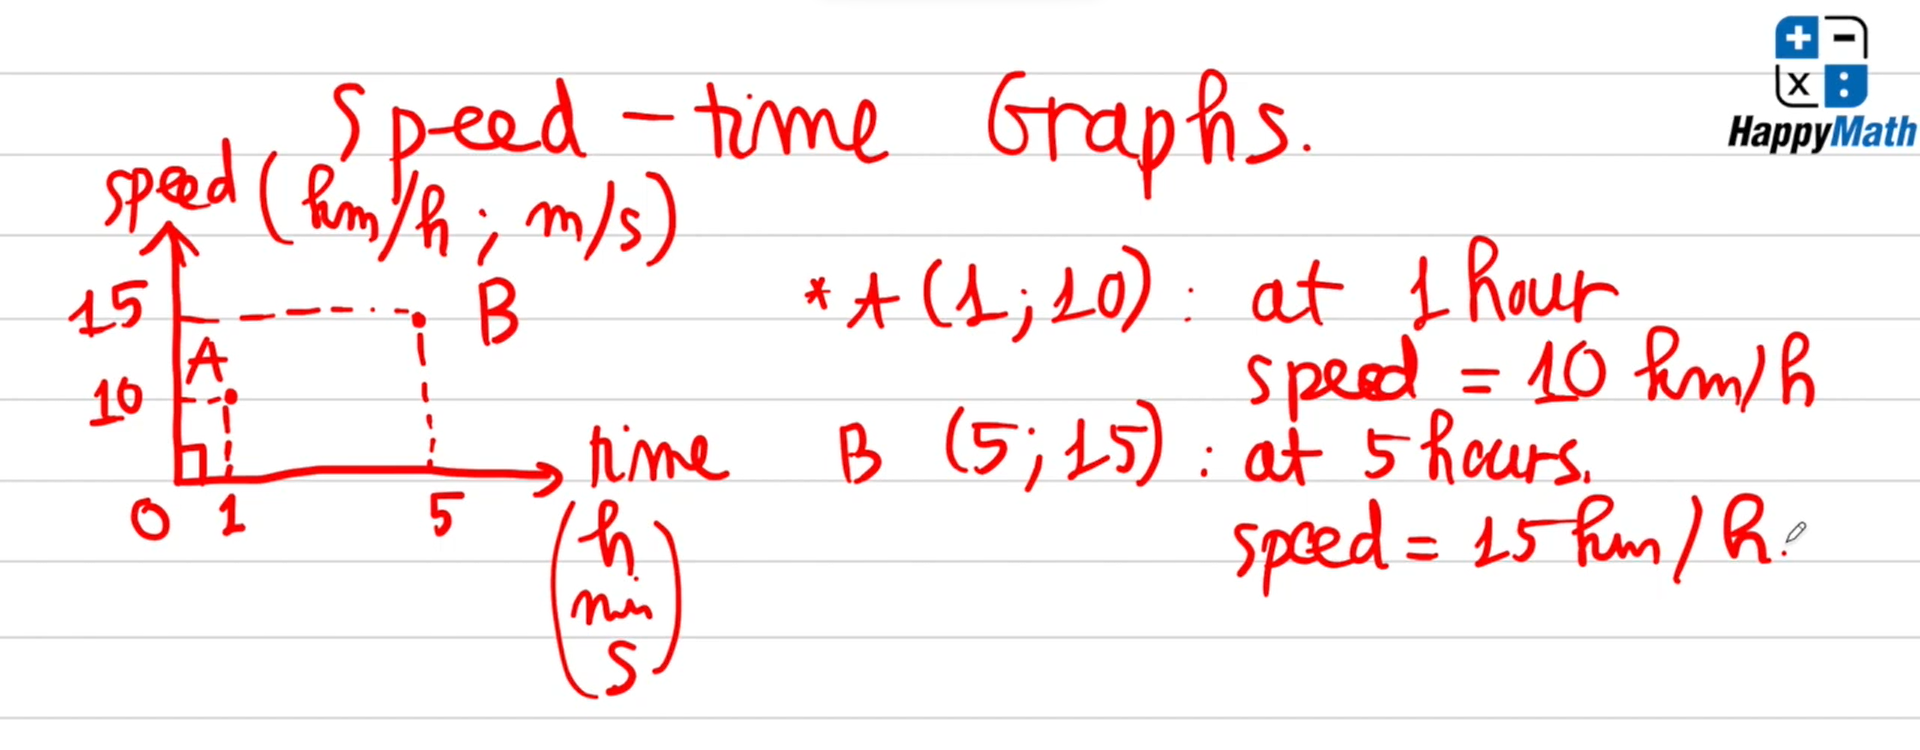 + −
x :
HappyMath
Speed - time Graphs.
speed (km/h ; m/s)
15
B
A
10
0 1 5
time
(h
min
s)
* A (1 ; 10) : at 1 hour
speed = 10 km/h
B (5 ; 15) : at 5 hours.
speed = 15 km/h.